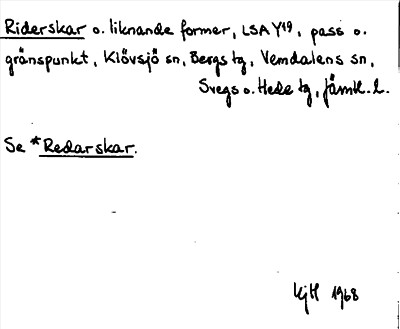 Riderskar o. liknande former, LSA Y19, pass o.
gränspunkt, Klövsjö sn, Bergs tg, Vemdalens sn,
Svegs o. Hede tg, Jämtl. l.
Se *Redarskar.
KjH 1968